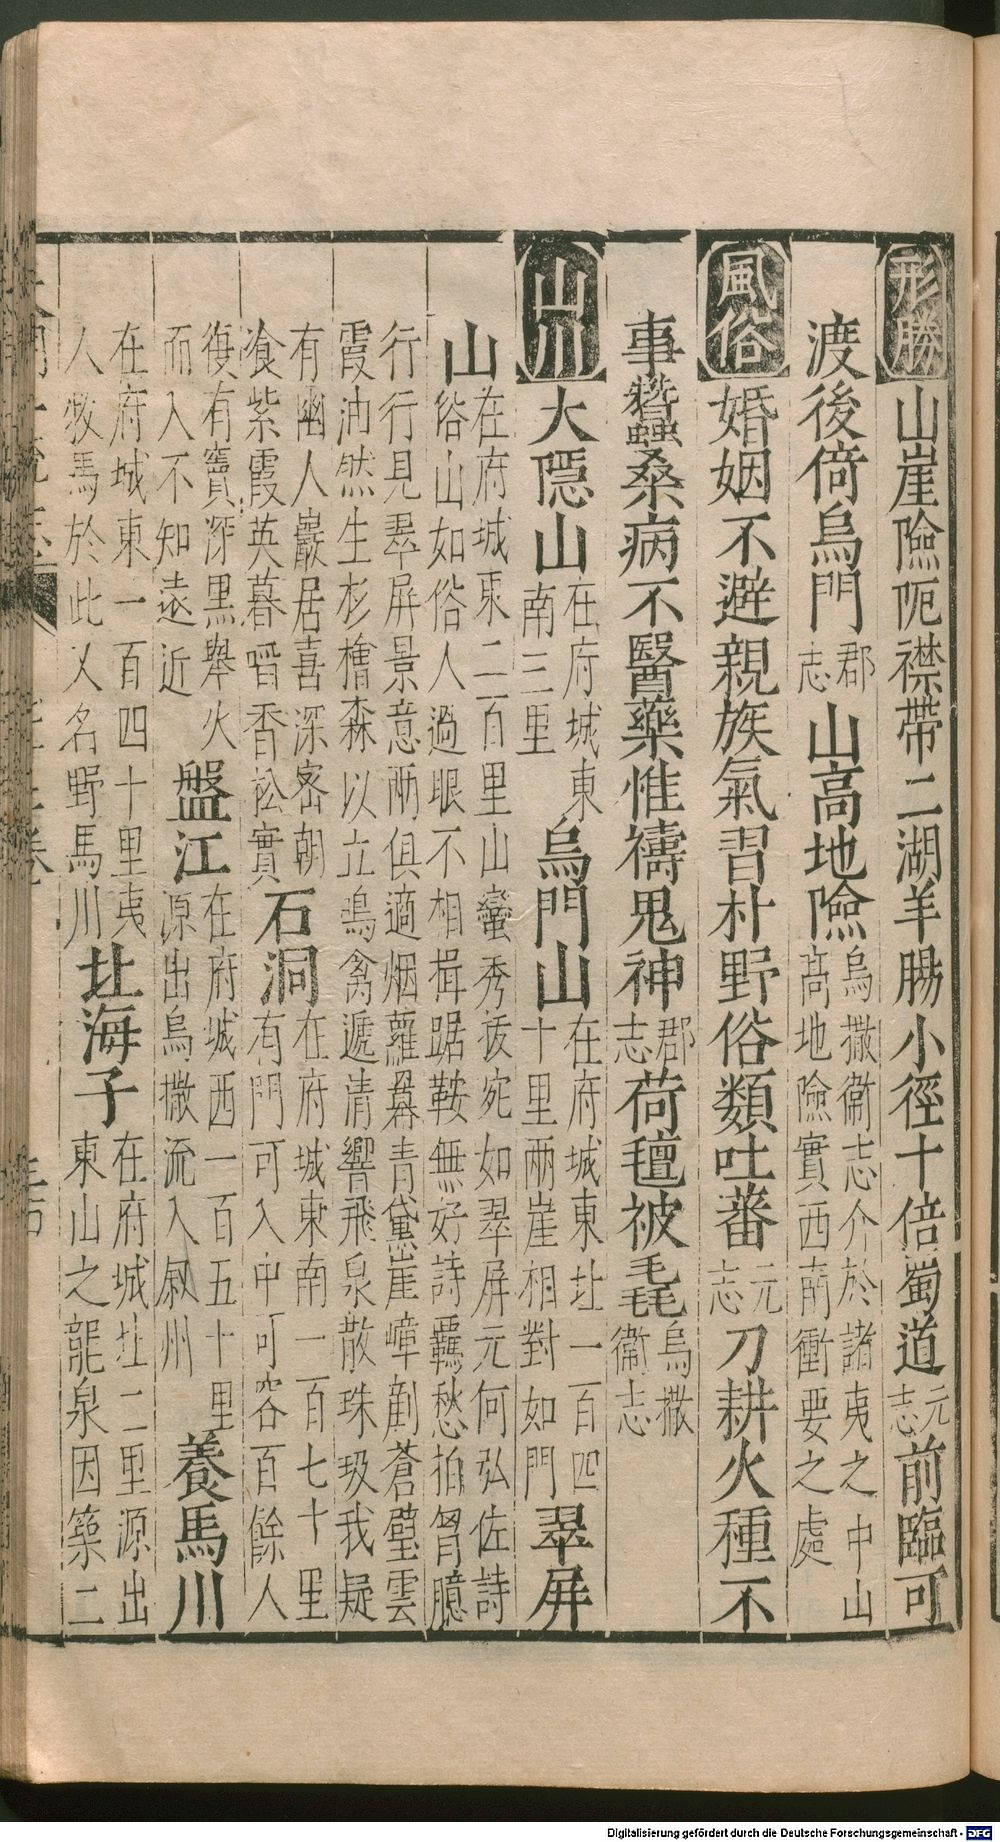 形勝山崖險阨襟帶二湖羊腸小徑十倍蜀道元志前臨可
渡後倚烏門郡志山高地險烏撒衛志介於諸夷之中山高地險實西南衝要之處
風俗婚姻不避親族氣習朴野俗類吐蕃元志刀耕火種不
事蠶桑病不醫藥惟禱鬼神郡志荷氊被毳烏撒衛志
山川大隱山在府城東南三里烏門山在府城東北一百四十里兩崖相對如門翠屏
山在府城東二百里山巒秀拔宛如翠屏元何弘佐詩俗山如俗人過眼不相揖踞鞍無好詩羈愁拍胷臆
行行見翠屏景意兩俱適烟蘿羃青黛崖嶂劃蒼璧雲霞油然生杉檜森以立鳥禽遞清響飛泉散珠玖我疑
有幽人巖居喜深密朝飡紫霞英暮㗖香松實石洞在府城東南一百七十里有門可入中可容百餘人
復有竇深黑舉火而入不知遠近盤江在府城西一百五十里源出烏撒流入叙州養馬川
在府城東一百四十里夷人牧馬於此又名野馬川北海子在府城北二里源出東山之龍泉因築二